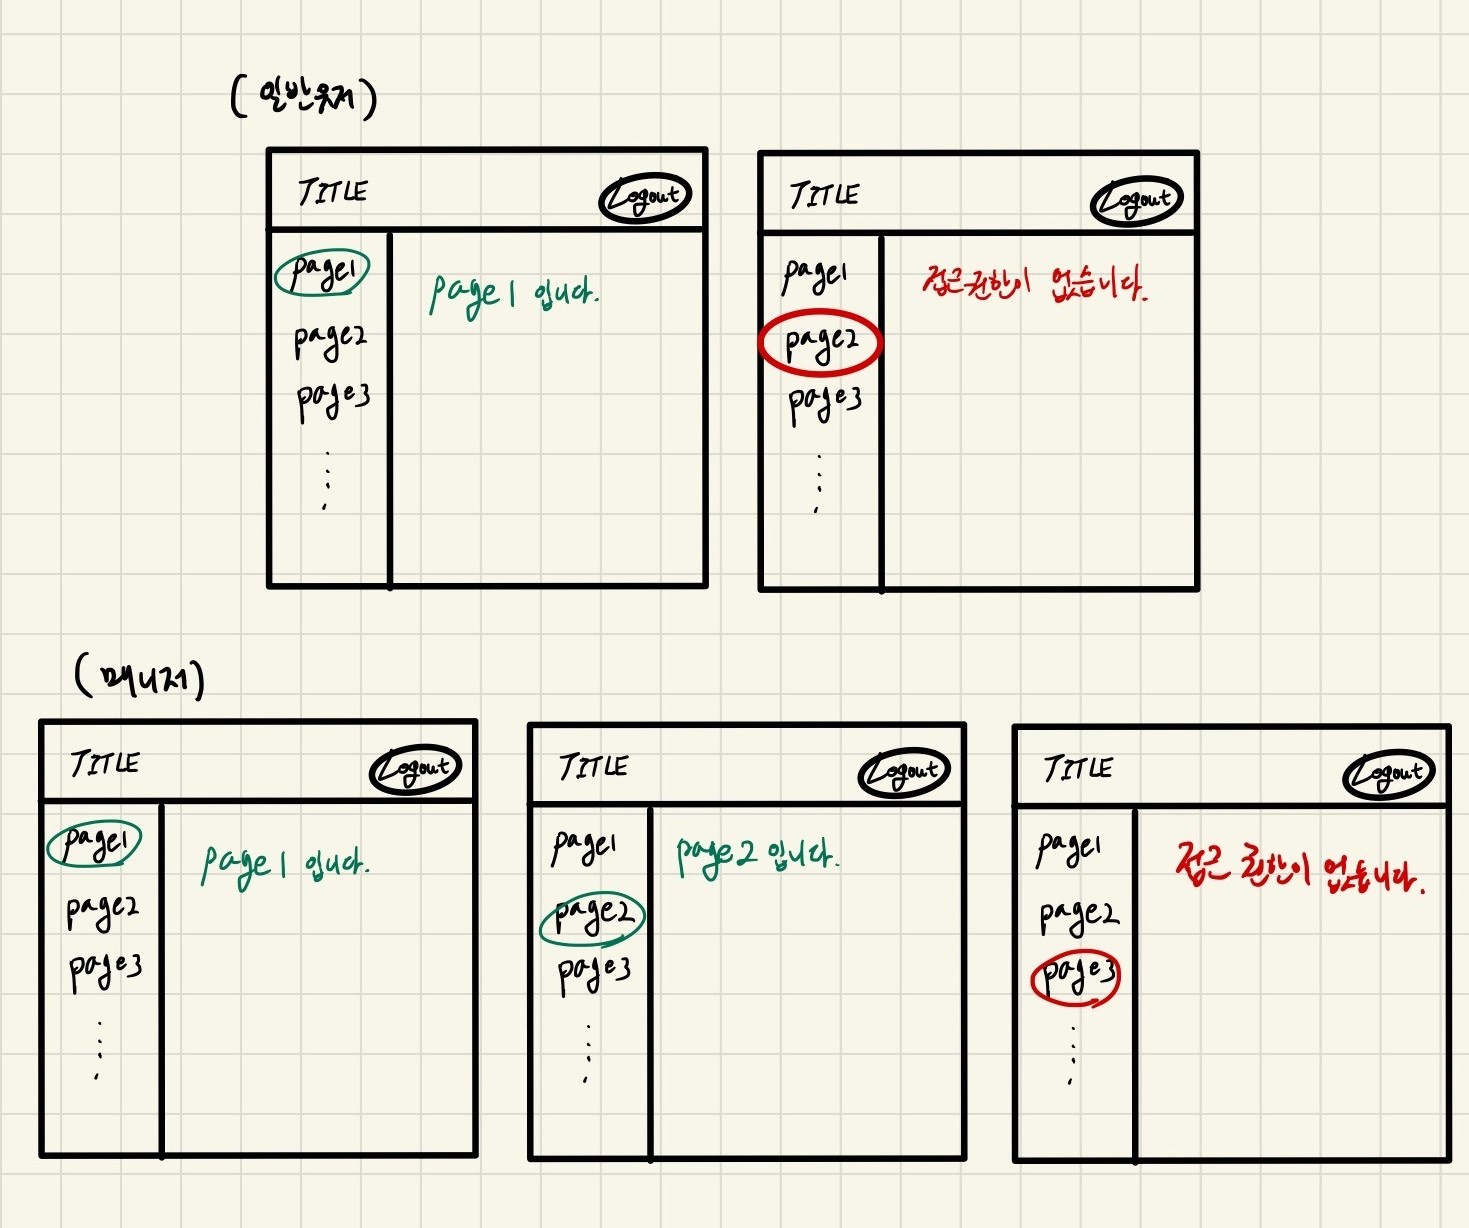 (일반유저)
TITLE
Logout
page1
page2
page3
page1 입니다.
TITLE
Logout
page1
page2
page3
접근권한이 없습니다.
(매니저)
TITLE
Logout
page1
page2
page3
page1 입니다.
TITLE
Logout
page1
page2
page3
page2 입니다.
TITLE
Logout
page1
page2
page3
접근 권한이 없습니다.